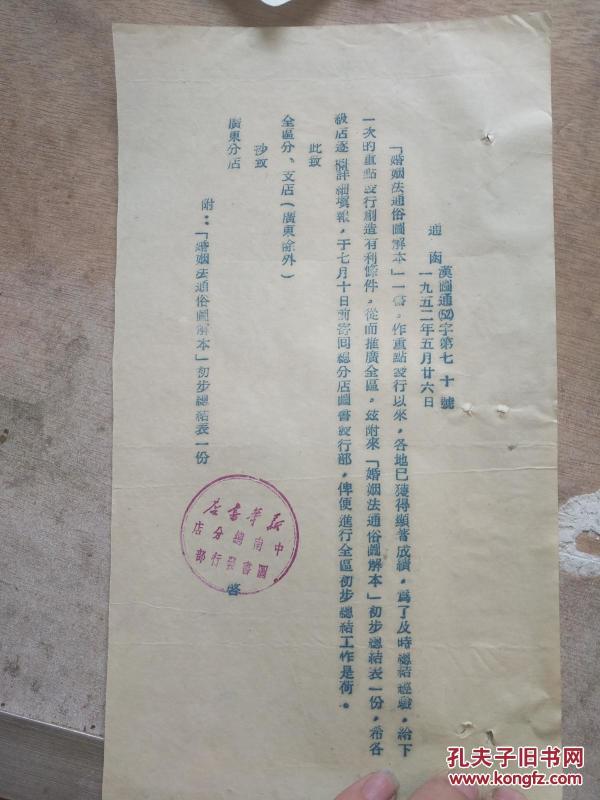 通函
漢圖通(52)字第七十號
一九五二年五月廿六日
「婚姻法通俗圖解本」一書，作重點發行以來，各地已獲得顯著成績，爲了及時總結經驗，給下
一次的重點發行創造有利條件，從而推廣全區，玆附來「婚姻法通俗圖解本」初步總結表一份，希各
級店逐欄詳細填報，于七月十日前寄囘總分店圖書發行部，俾便進行全區初步總結工作是荷。
此致
全區分、支店（廣東除外）
抄致
廣東分店
附：「婚姻法通俗圖解本」初步總結表一份
新華書店
中南總分店
圖書發行部
啓
孔夫子旧书网
www.kongfz.com